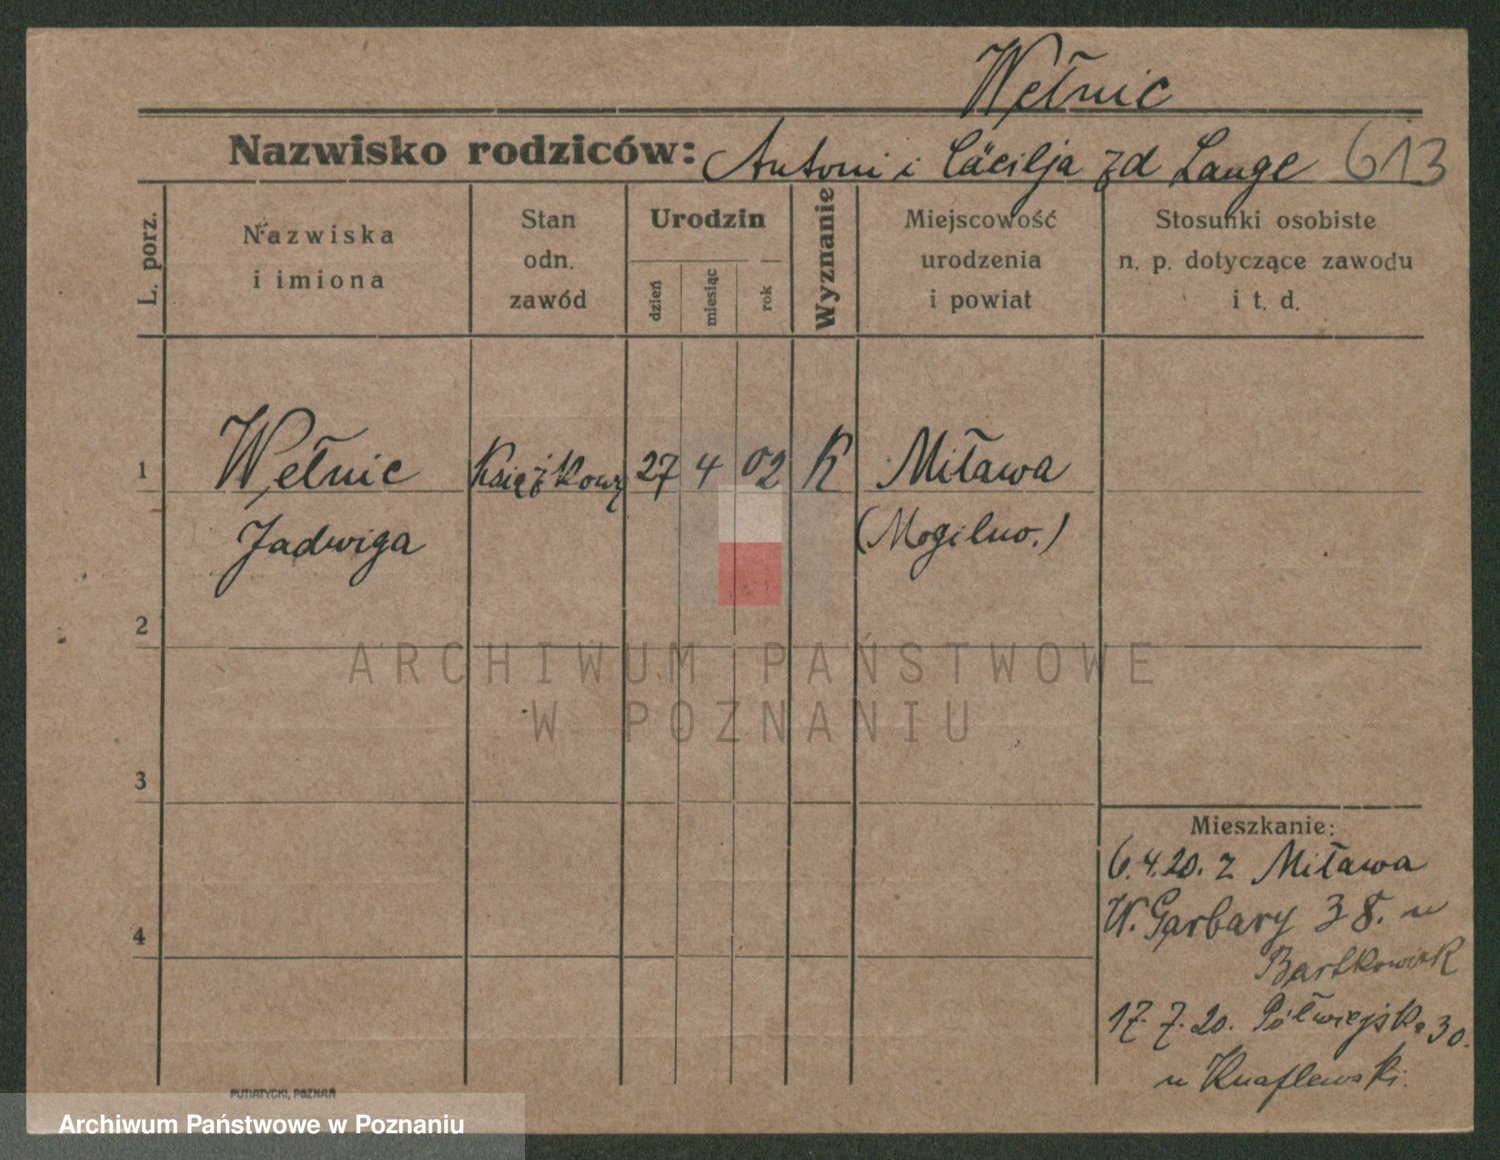 Wełnic
Nazwisko rodziców: Antoni i Cäcilja zd Lange 613
L. porz.
Nazwiska
i imiona
Stan
odn.
zawód
Urodzin
dzień
miesiąc
rok
Wyznanie
Miejscowość
urodzenia
i powiat
Stosunki osobiste
n. p. dotyczące zawodu
i t. d.
1 Wełnic Księżkowy 27 4 02 K Miława
Jadwiga (Mogilno.)
2
ARCHIWUM PAŃSTWOWE
W POZNANIU
3
Mieszkanie:
6.4.20. z Miława
W. Garbary 38. u
Bartkowiak
4
17.7.20. Półwiejska 30.
u Knaflewski.
PUTIATYCKI, POZNAŃ
Archiwum Państwowe w Poznaniu